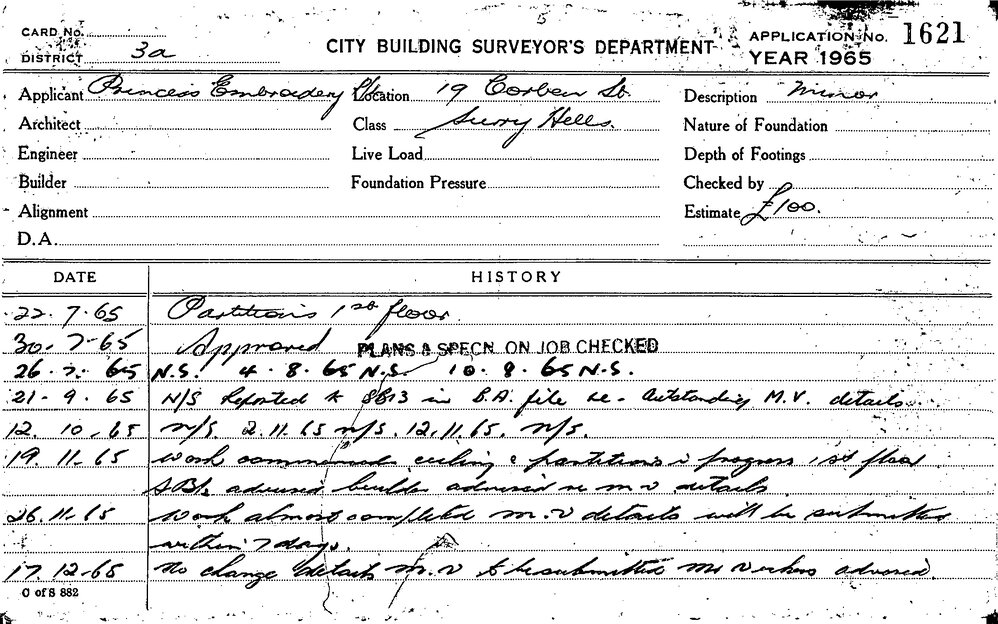 CARD No.
DISTRICT 3a
CITY BUILDING SURVEYOR'S DEPARTMENT
APPLICATION No. 1621
YEAR 1965
Applicant Princess Embroadery P/L Location 19 Corben St. Description Minor
Architect Class Surry Hills. Nature of Foundation
Engineer Live Load Depth of Footings
Builder Foundation Pressure Checked by
Alignment Estimate £100.
D.A.
DATE HISTORY
22.7.65 Partitions 1st floor.
30.7.65 Approved PLANS & SPECN. ON JOB CHECKED
26.7.65 N.S. 4.8.65 N.S. 10.9.65 N.S.
21.9.65 N/S Reported to in B.A. file re. Outstanding M.V. details.
12.10.65 N/S. 2.11.65 N/S. 12.11.65. N/S.
19.11.65 Work commenced ceiling & partitions in progress 1st floor
advised builder advised re M.V details
26.11.65 Work almost completed M.V details will be submitted
within 7 days.
17.12.65 No change details M.V to be submitted Mr advised.
O of S 882